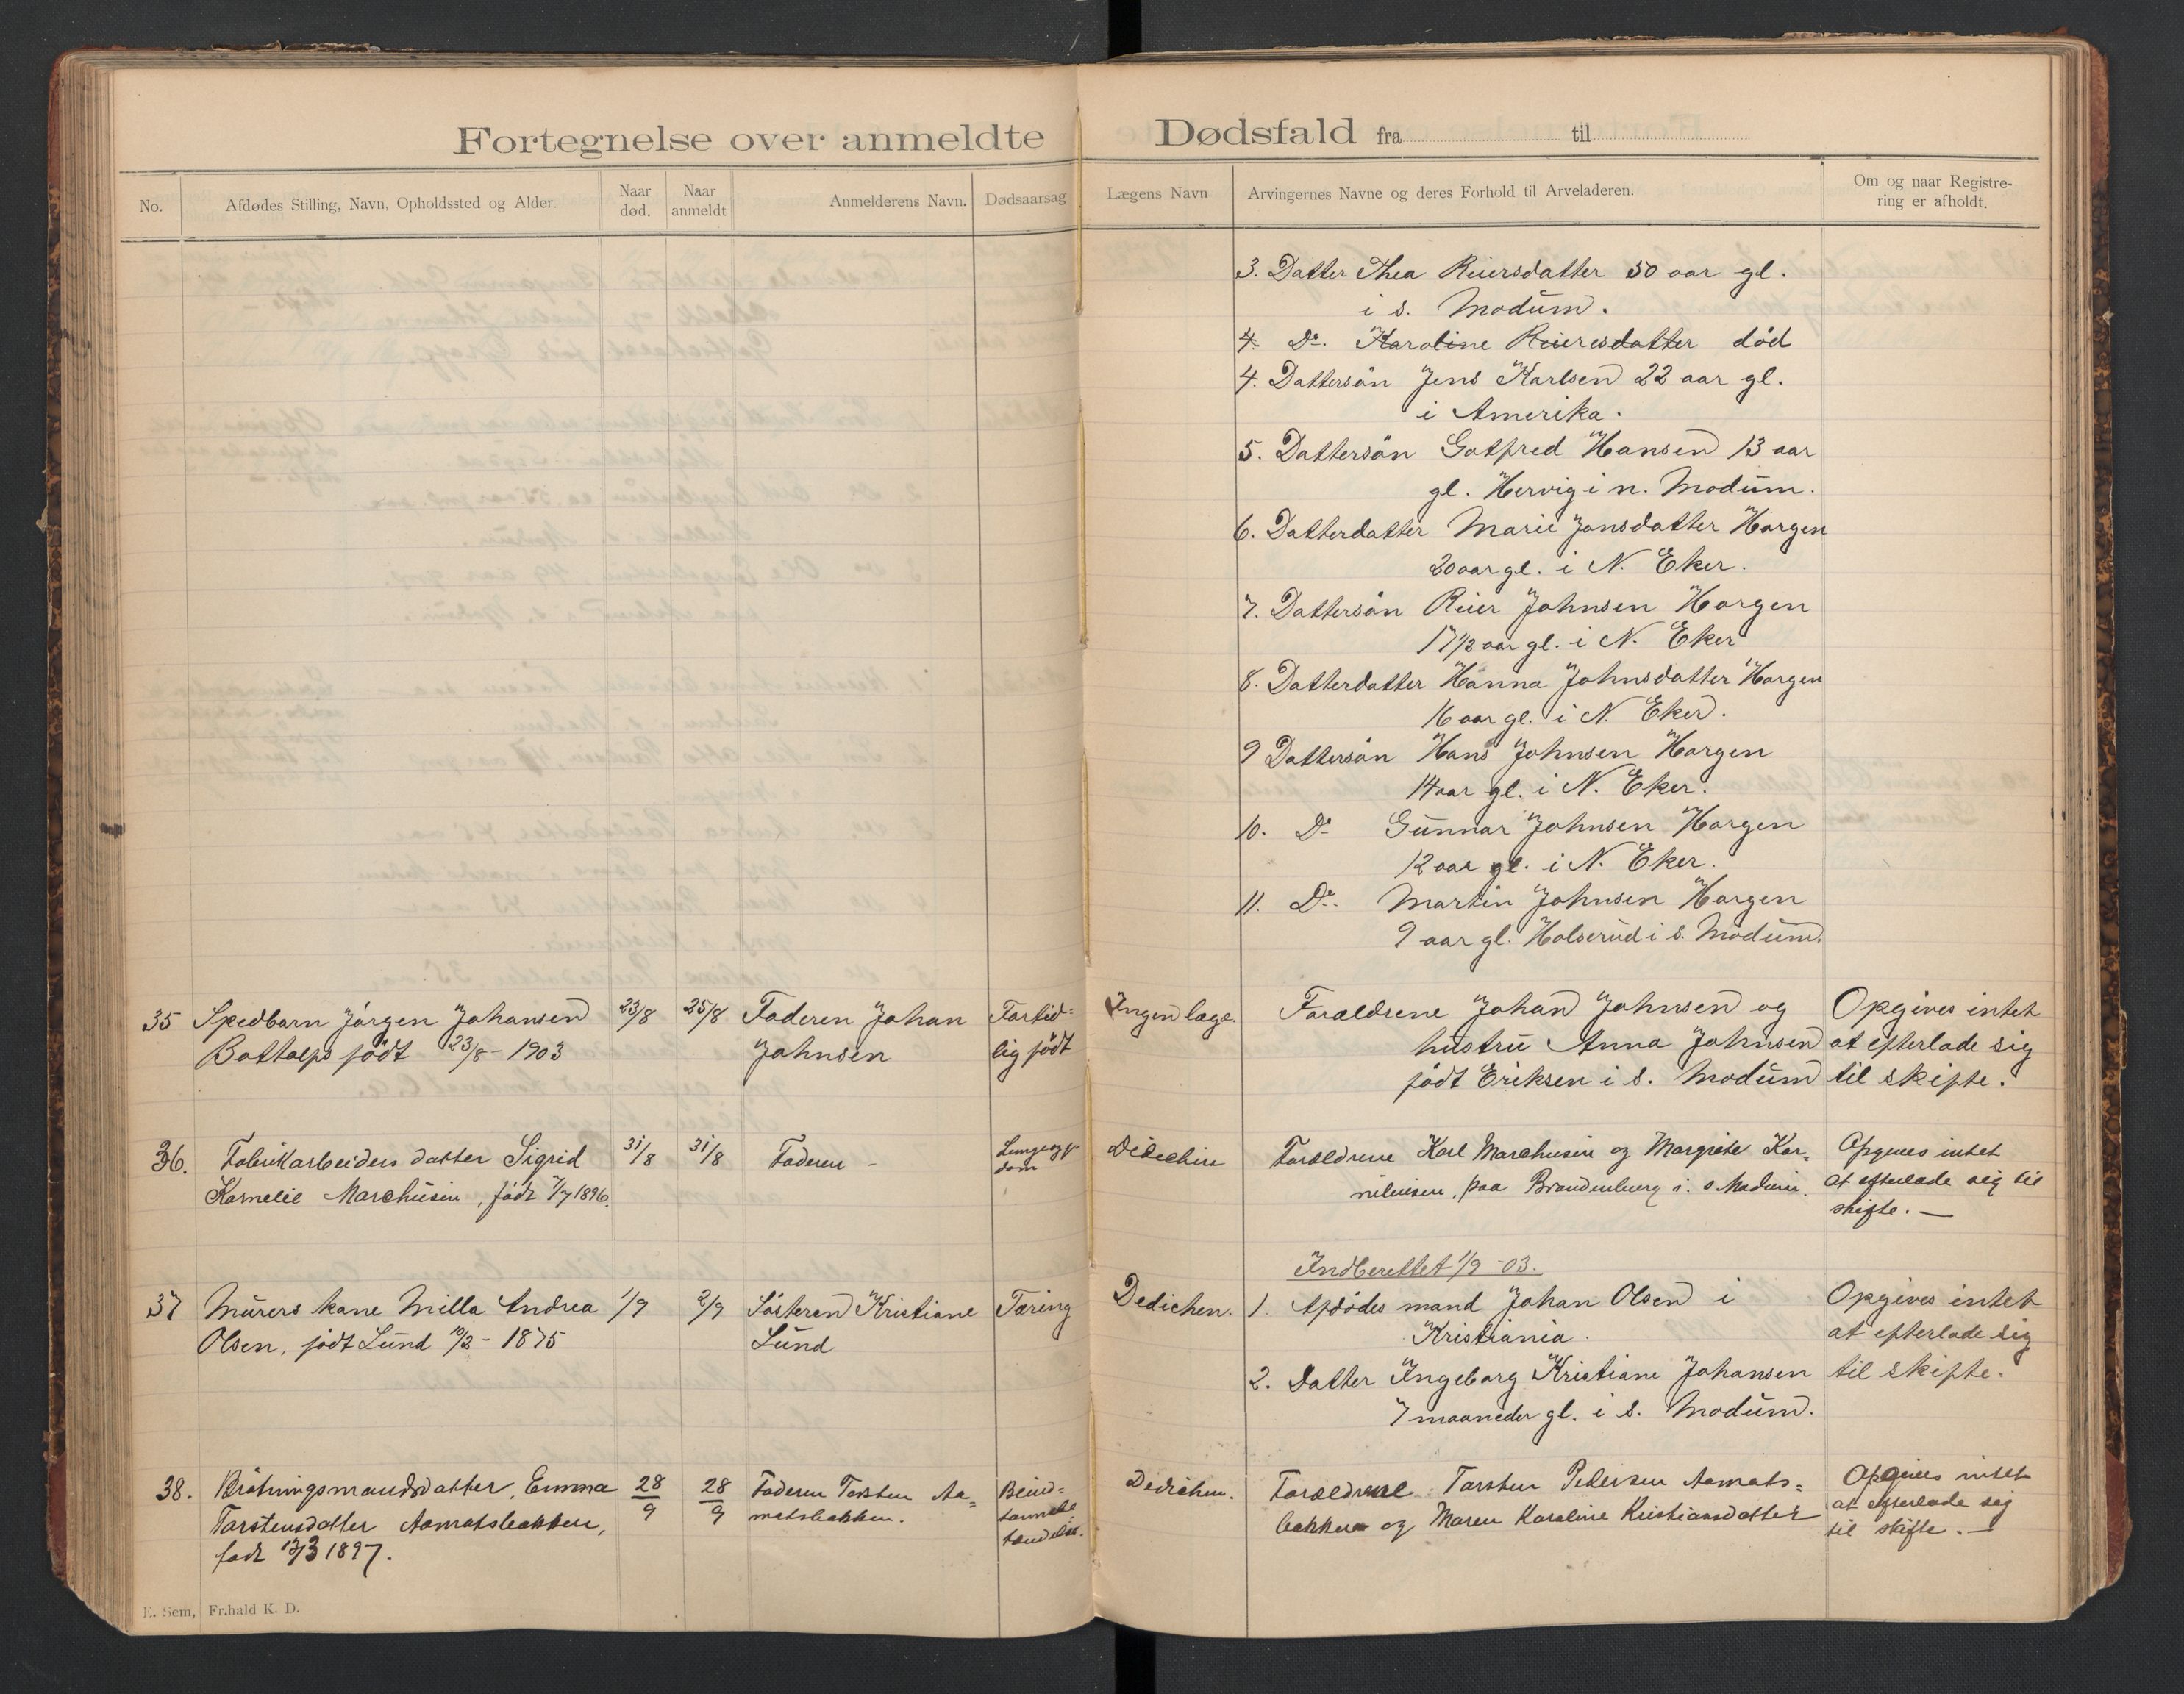 Fortegnelse over anmeldte Dødsfald fra til
No.
Afdødes Stilling, Navn, Opholdssted og Alder.
Naar død.
Naar anmeldt
Anmelderens Navn.
Dødsaarsag
Lægens Navn
Arvingernes Navne og deres Forhold til Arveladeren.
Om og naar Registre-
ring er afholdt.
3. Datter Thea Reiersdatter 50 aar gl.
i s. Modum.
4. Do. Karoline Reieresdatter død
4. Dattersön Jens Karlsen 22 aar gl.
i Amerika.
5. Dattersön Gotfred Hansen 13 aar
gl. Hervig i n. Modum.
6. Datterdatter Marie Jonsdatter Horgen
20 aar gl. i N. Eker.
7. Dattersön Reier Johnsen Horgen
17 1/2 aar gl. i N. Eker
8. Datterdatter Hanna Johnsdatter Horgen
16 aar gl. i N. Eker.
9 Dattersön Hans Johnsen Horgen
14 aar gl. i N. Eker.
10. Do Gunnar Johnsen Horgen
12 aar gl. i N. Eker.
11. Do. Martin Johnsen Horgen
9 aar gl. Holserud i s. Modum.
35 Spedbarn Jörgen Johansen 23/8 25/8 Faderen Johan Fortid- Ingen læge. Forældrene Johan Johnsen og Opgives intet
Bottolfs födt 23/8 - 1903 Johnsen lig födt hustru Anna Johnsen at efterlade sig
födt Eriksen i s. Modum til skifte.
36. Fabrikarbeiders datter Sigrid 31/8 31/8 Faderen - Lungesyg- Dedichen Forældrene Karl Marchusen og Margrete Kor- Opgives intet
Kornelie Marchusen, födt 7/7 1896. dom neliusen, paa Brandenburg i s. Modum. at efterlade sig til
skifte. —
Indberettet 1/9 - 03.
37 Murers kone Milla Andrea 1/9 2/9 Sösteren Kristiane Tæring Dedichen. 1. Afdödes mand Johan Olsen i Opgives intet
Olsen, födt Lund 10/2 - 1875 Lund Kristiania. at efterlade sig
2. Datter Ingeborg Kristiane Johansen til skifte.
7 maaneder gl. i s. Modum.
38. Bråtningsmandsdatter Emma 28/9 28/9 Faderen Torsten Aa- Blind- Dedichen. Forældrene Torsten Pedersen Aamots- Opgives intet
Torstensdatter Aamotsbakken, motsbakken. tarmsbe- bakken og Maren Karoline Kristiansdatter at efterlade sig
födt 13/3 1897. tændelse. til skifte. —
E. Sem, Fr.hald K. D.